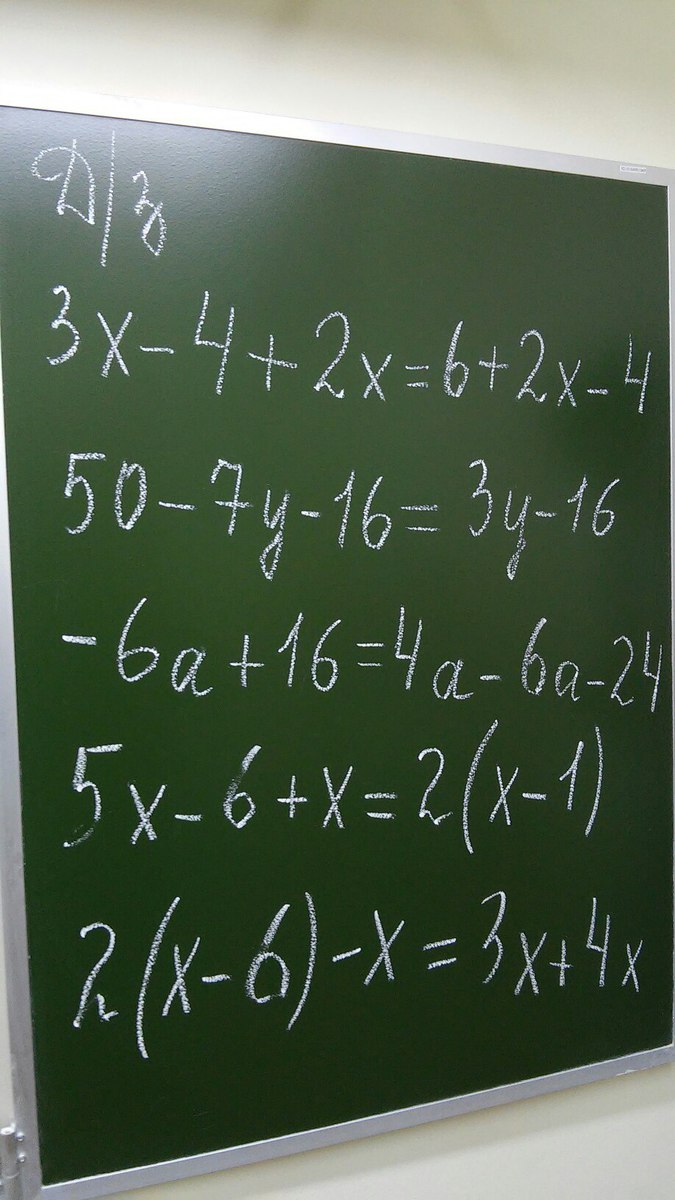 Д/з
3x-4+2x=6+2x-4
50-7y-16=3y-16
-6a+16=4a-6a-24
5x-6+x=2(x-1)
2(x-6)-x=3x+4x